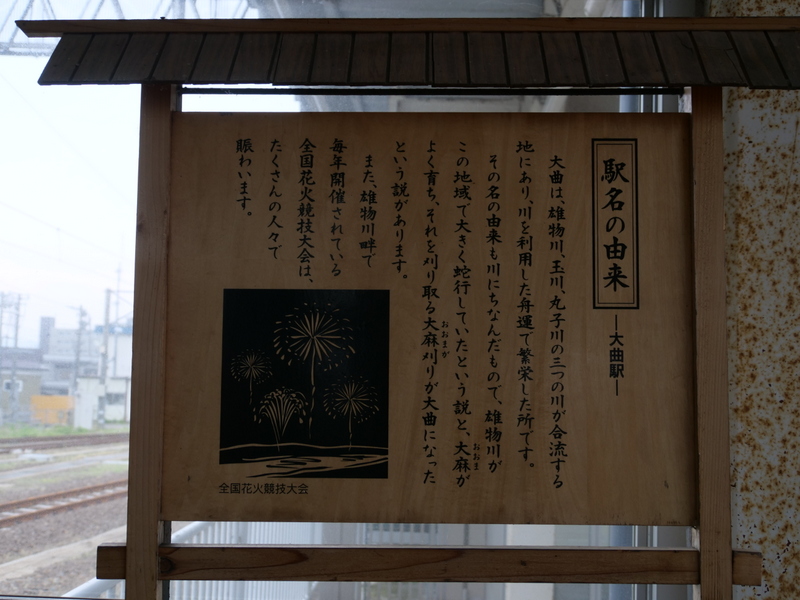 駅名の由来
―大曲駅―
大曲は、雄物川、玉川、丸子川の三つの川が合流する
地にあり、川を利用した舟運で繁栄した所です。
その名の由来も川にちなんだもので、雄物川が
この地域で大きく蛇行していたという説と、大麻が
おおま
よく育ち、それを刈り取る大麻刈りが大曲になった
おおまが
という説があります。
また、雄物川畔で
毎年開催されている
全国花火競技大会は、
たくさんの人々で
賑わいます。
全国花火競技大会